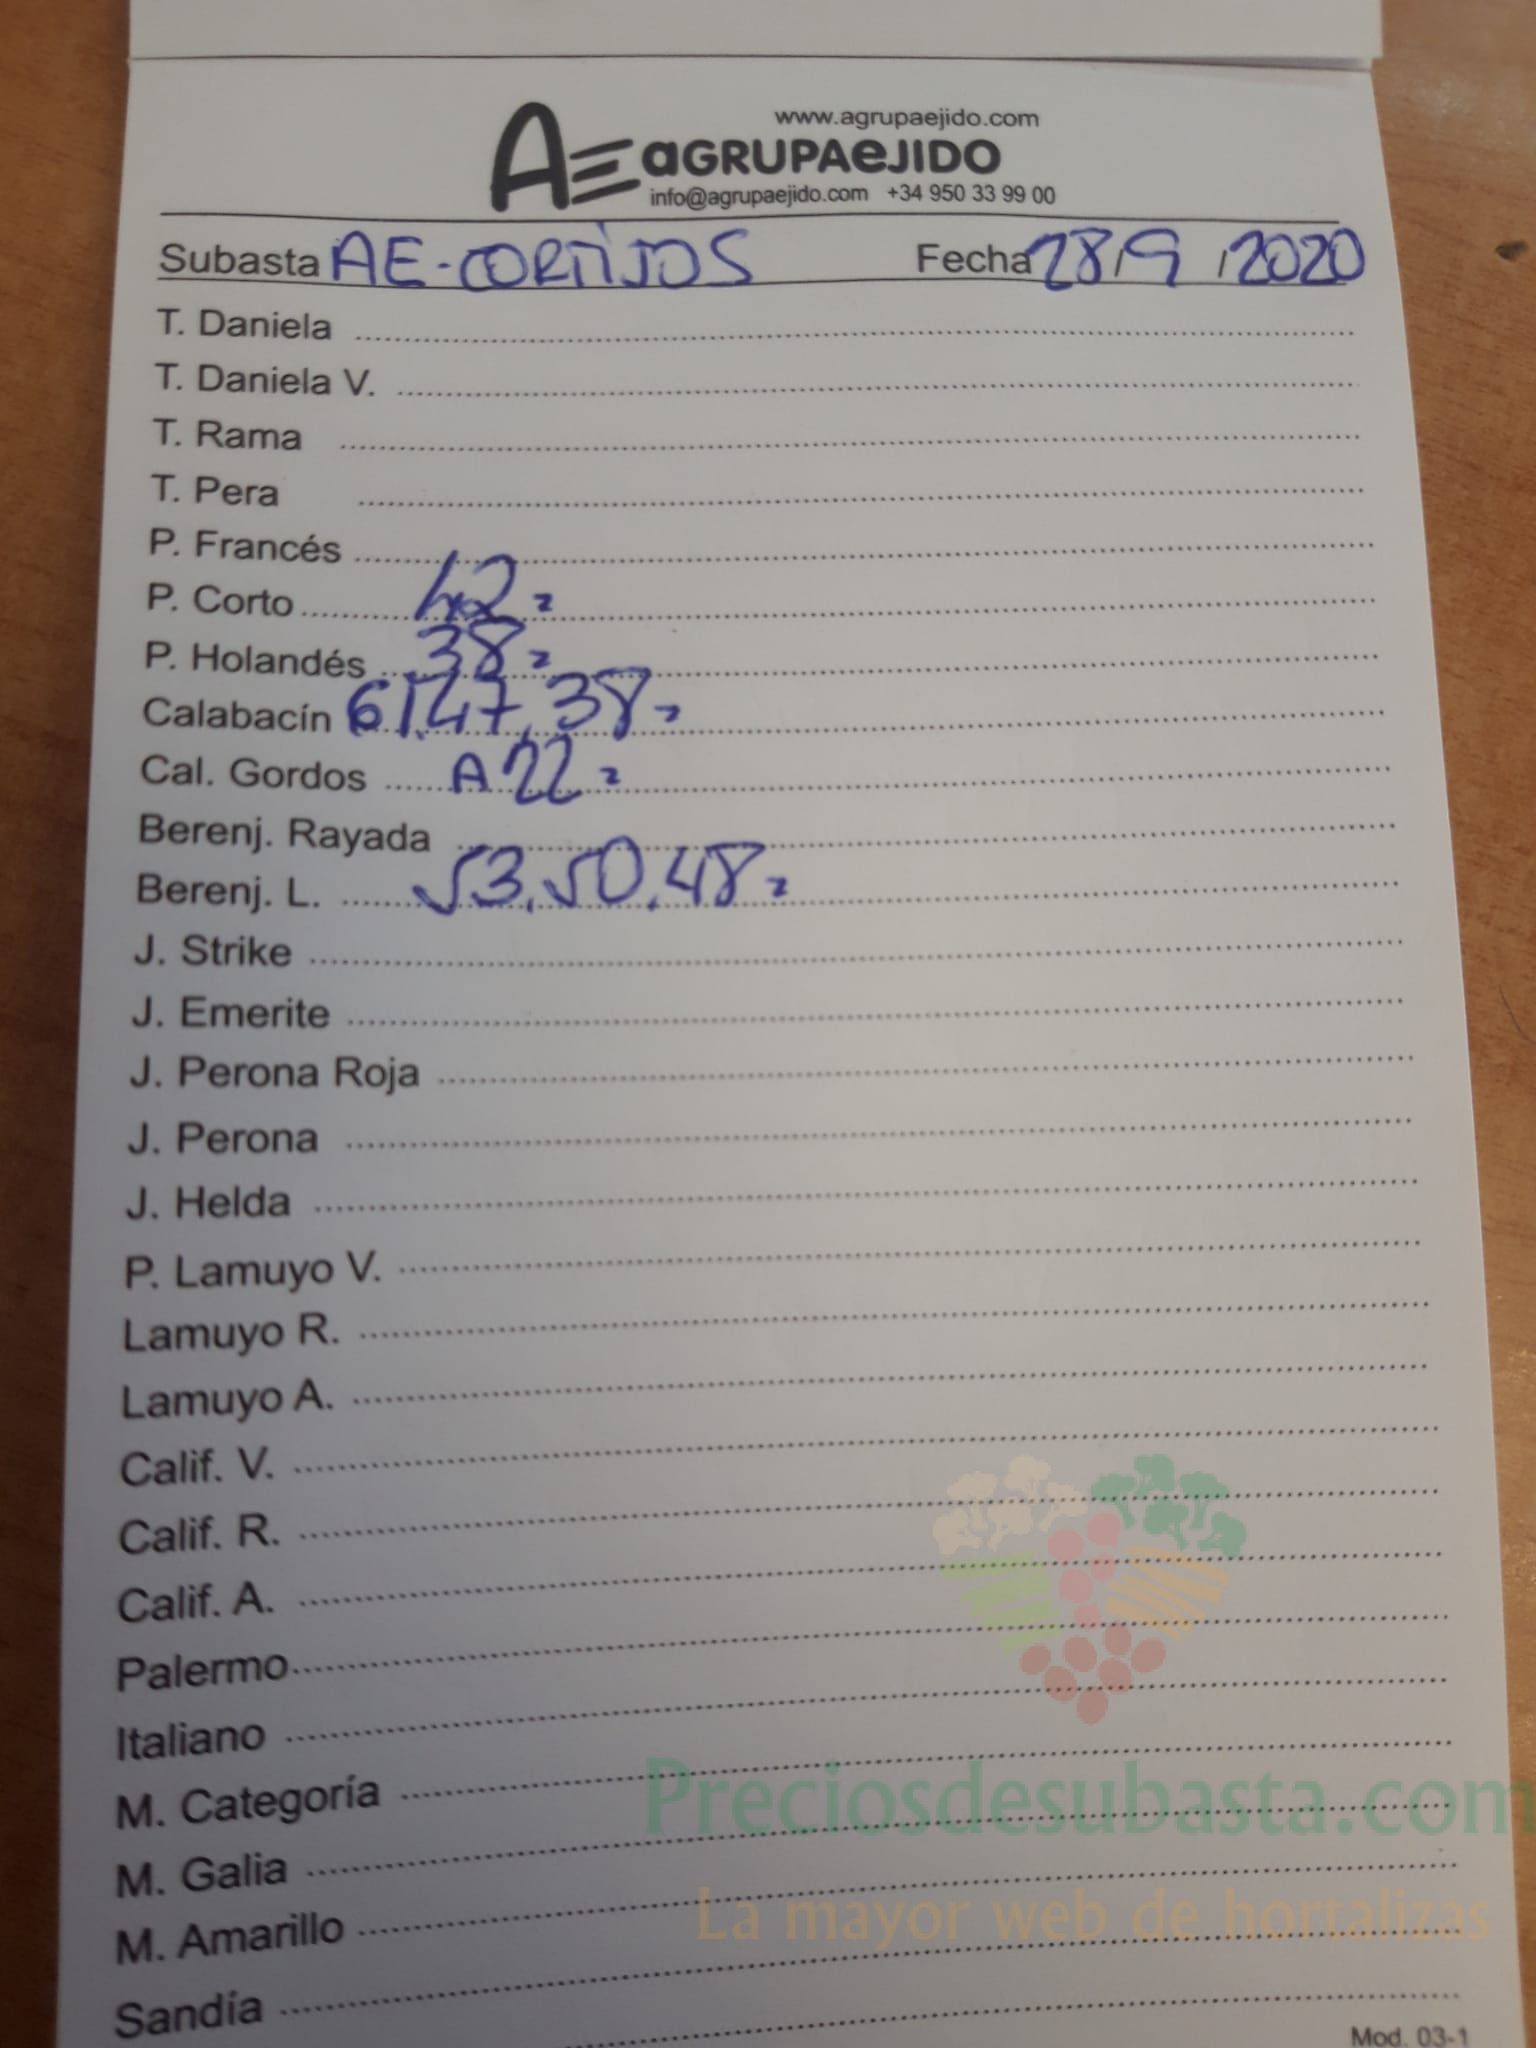 www.agrupaejido.com
AE aGRUPAeJIDO
info@agrupaejido.com +34 950 33 99 00
Subasta AE-CORTIJOS Fecha 28/9/2020
T. Daniela
T. Daniela V.
T. Rama
T. Pera
P. Francés
P. Corto 42=
P. Holandés 38=
Calabacín 61,47,38=
Cal. Gordos A 22=
Berenj. Rayada
Berenj. L. 53,50,48=
J. Strike
J. Emerite
J. Perona Roja
J. Perona
J. Helda
P. Lamuyo V.
Lamuyo R.
Lamuyo A.
Calif. V.
Calif. R.
Calif. A.
Palermo
Italiano
M. Categoría
M. Galia
M. Amarillo
Sandía
Preciosdesubasta.com
La mayor web de hortalizas
Mod. 03-1